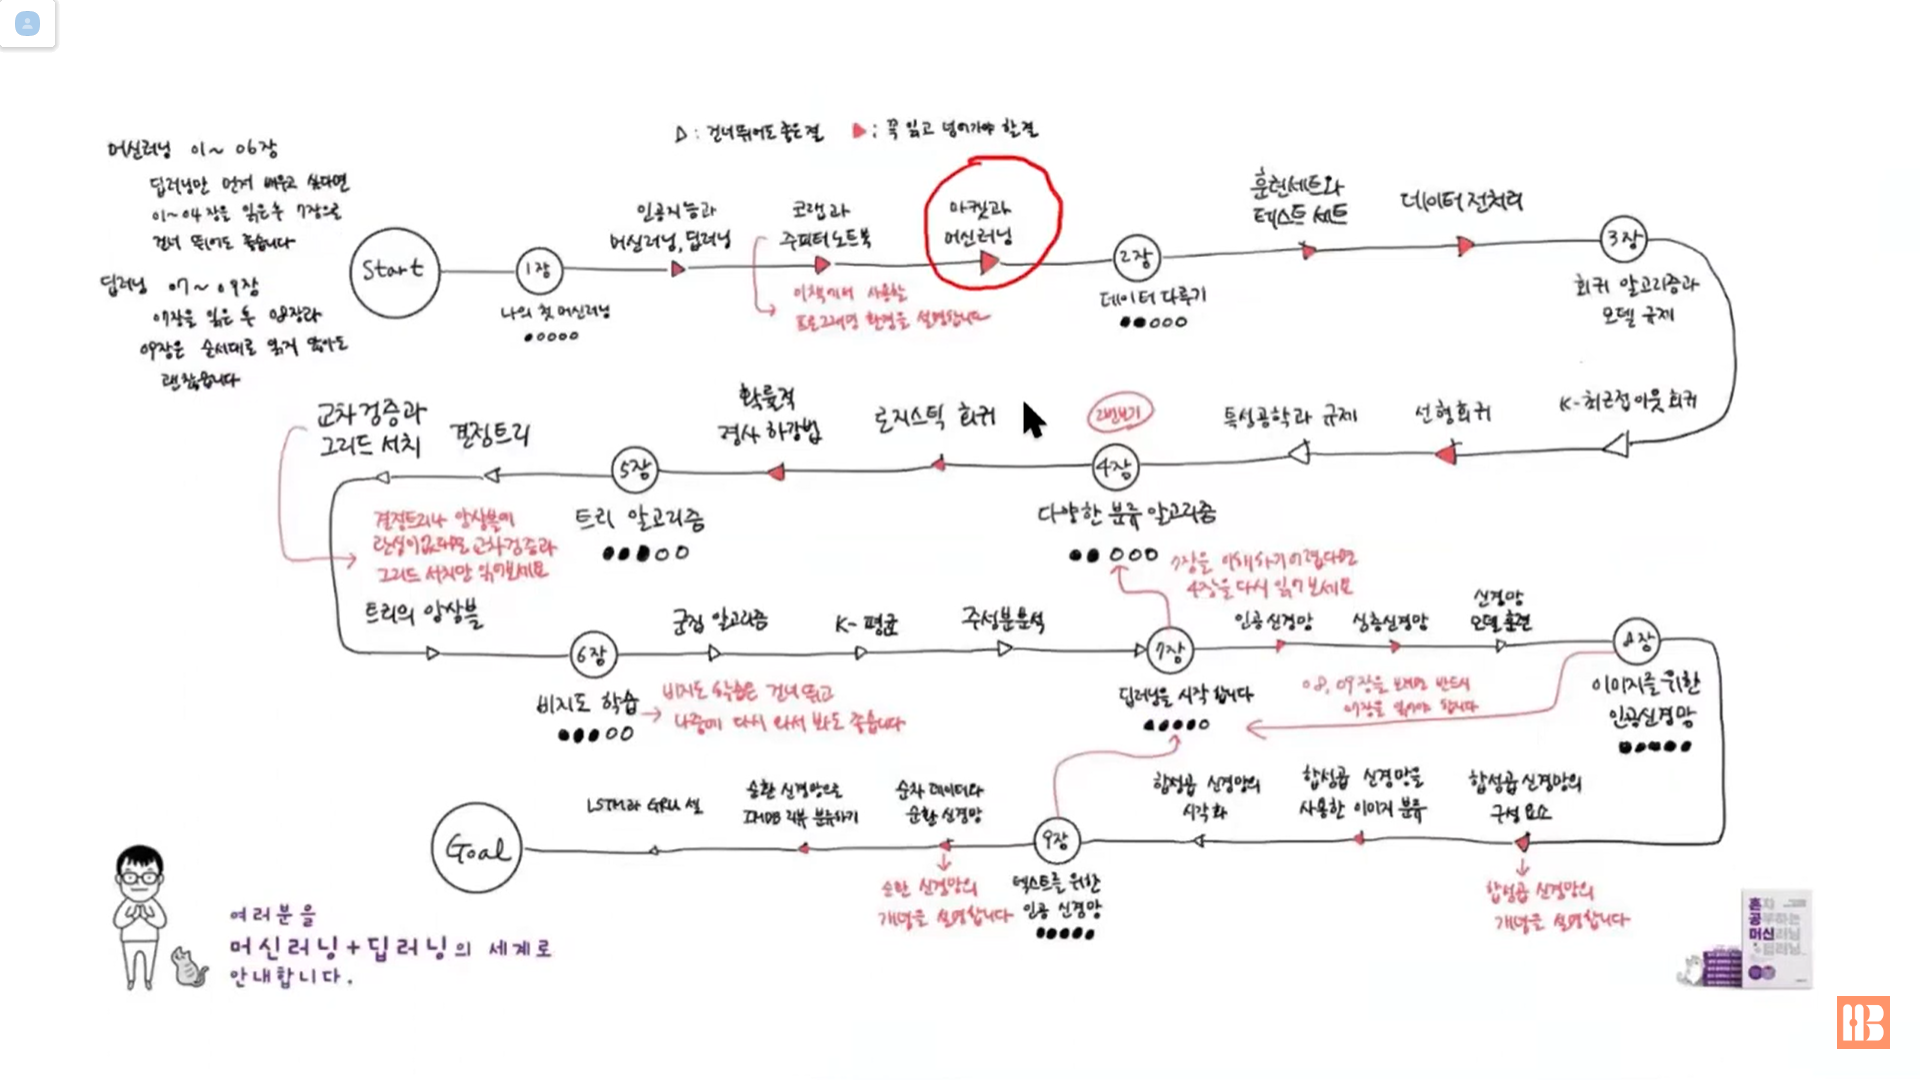 △ : 건너뛰어도 좋은 절
▶ : 꼭 읽고 넘어가야 할 절
머신러닝 01~06장
딥러닝만 먼저 배우고 싶다면
01~04장을 읽은 후 7장으로
건너 뛰어도 좋습니다
딥러닝 07~09장
07장을 읽은 후 08장과
09장은 순서대로 읽지 않아도
괜찮습니다
Start
1장
나의 첫 머신러닝
인공지능과
머신러닝, 딥러닝
코랩과
주피터 노트북
이 책에서 사용할
프로그래밍 환경을 설명합니다
마켓과
머신러닝
2장
데이터 다루기
훈련 세트와
테스트 세트
데이터 전처리
3장
회귀 알고리즘과
모델 규제
K-최근접 이웃 회귀
선형 회귀
특성 공학과 규제
2번 보기
4장
다양한 분류 알고리즘
로지스틱 회귀
확률적
경사 하강법
5장
트리 알고리즘
결정트리
교차 검증과
그리드 서치
결정트리나 앙상블에
관심이 없다면 교차 검증과
그리드 서치만 읽어보세요
트리의 앙상블
6장
비지도 학습
비지도 학습은 건너 뛰고
나중에 다시 와서 봐도 좋습니다
군집 알고리즘
K-평균
주성분 분석
7장
딥러닝을 시작합니다
7장을 이해하기 어렵다면
4장을 다시 읽어 보세요
인공 신경망
심층 신경망
신경망
모델 훈련
8장
이미지를 위한
인공 신경망
08, 09장을 보려면 반드시
07장을 읽어야 합니다
합성곱 신경망의
구성 요소
합성곱 신경망의
개념을 설명합니다
합성곱 신경망을
사용한 이미지 분류
합성곱 신경망의
시각화
9장
텍스트를 위한
인공 신경망
순차 데이터와
순환 신경망
순환 신경망의
개념을 설명합니다
순환 신경망으로
IMDB 리뷰 분류하기
LSTM과 GRU 셀
Goal
여러분을
머신러닝+딥러닝의 세계로
안내합니다.
혼자
공부하는
머신러닝
+딥러닝